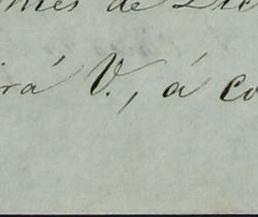 mes de Dic
irá V., á co